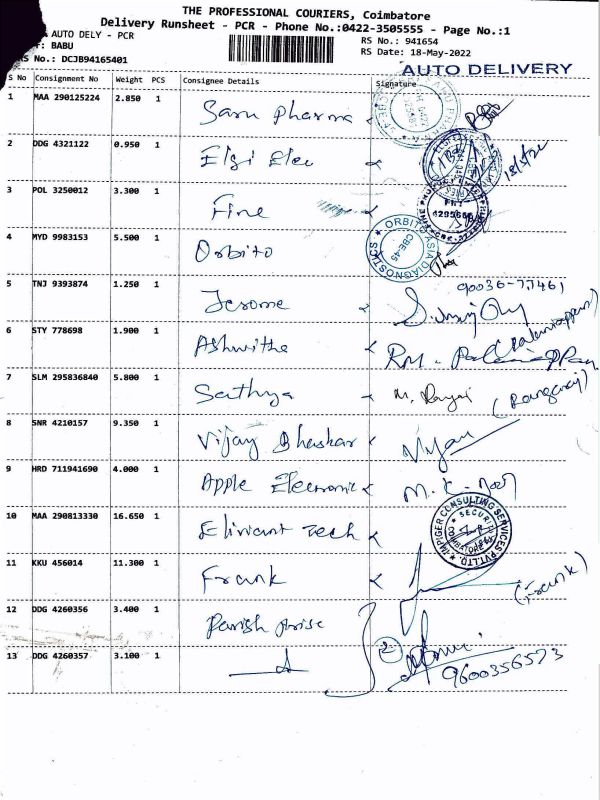 THE PROFESSIONAL COURIERS, Coimbatore
Delivery Runsheet - PCR - Phone No.:0422-3505555 - Page No.:1
AUTO DELY - PCR
: BABU
RS No.: DCJB94165401
RS No.: 941654
RS Date: 18-May-2022
AUTO DELIVERY
S No Consignment No Weight PCS Consignee Details Signature
1 MAA 290125224 2.850 1 Saru Pharma
2 DDG 4321122 0.950 1 Elgi Elec
18/5/22
3 POL 3250012 3.300 1 Fine
4295666
4 MYD 9983153 5.500 1 Orbito
ORBITO ASIA DIAGNOSTICS
CBE-45
5 TNJ 9393874 1.250 1 Jerome
90036-77461
6 STY 778698 1.900 1 Ashwitha
RM. Palaniappan
(Palaniappan)
7 SLM 295836840 5.800 1 Sathya
(Rangaraj)
8 SNR 4210157 9.350 1 Vijay Bhaskar
Vijay
9 HRD 711941690 4.000 1 Apple Electronic
10 MAA 290813330 16.650 1 Tech
IMPIGER CONSULTING SERVICES PVT.LTD.
11 KKU 456014 11.300 1 Frank
(Frank)
12 DDG 4260356 3.400 1
13 DDG 4260357 3.100 1
2
9600356573